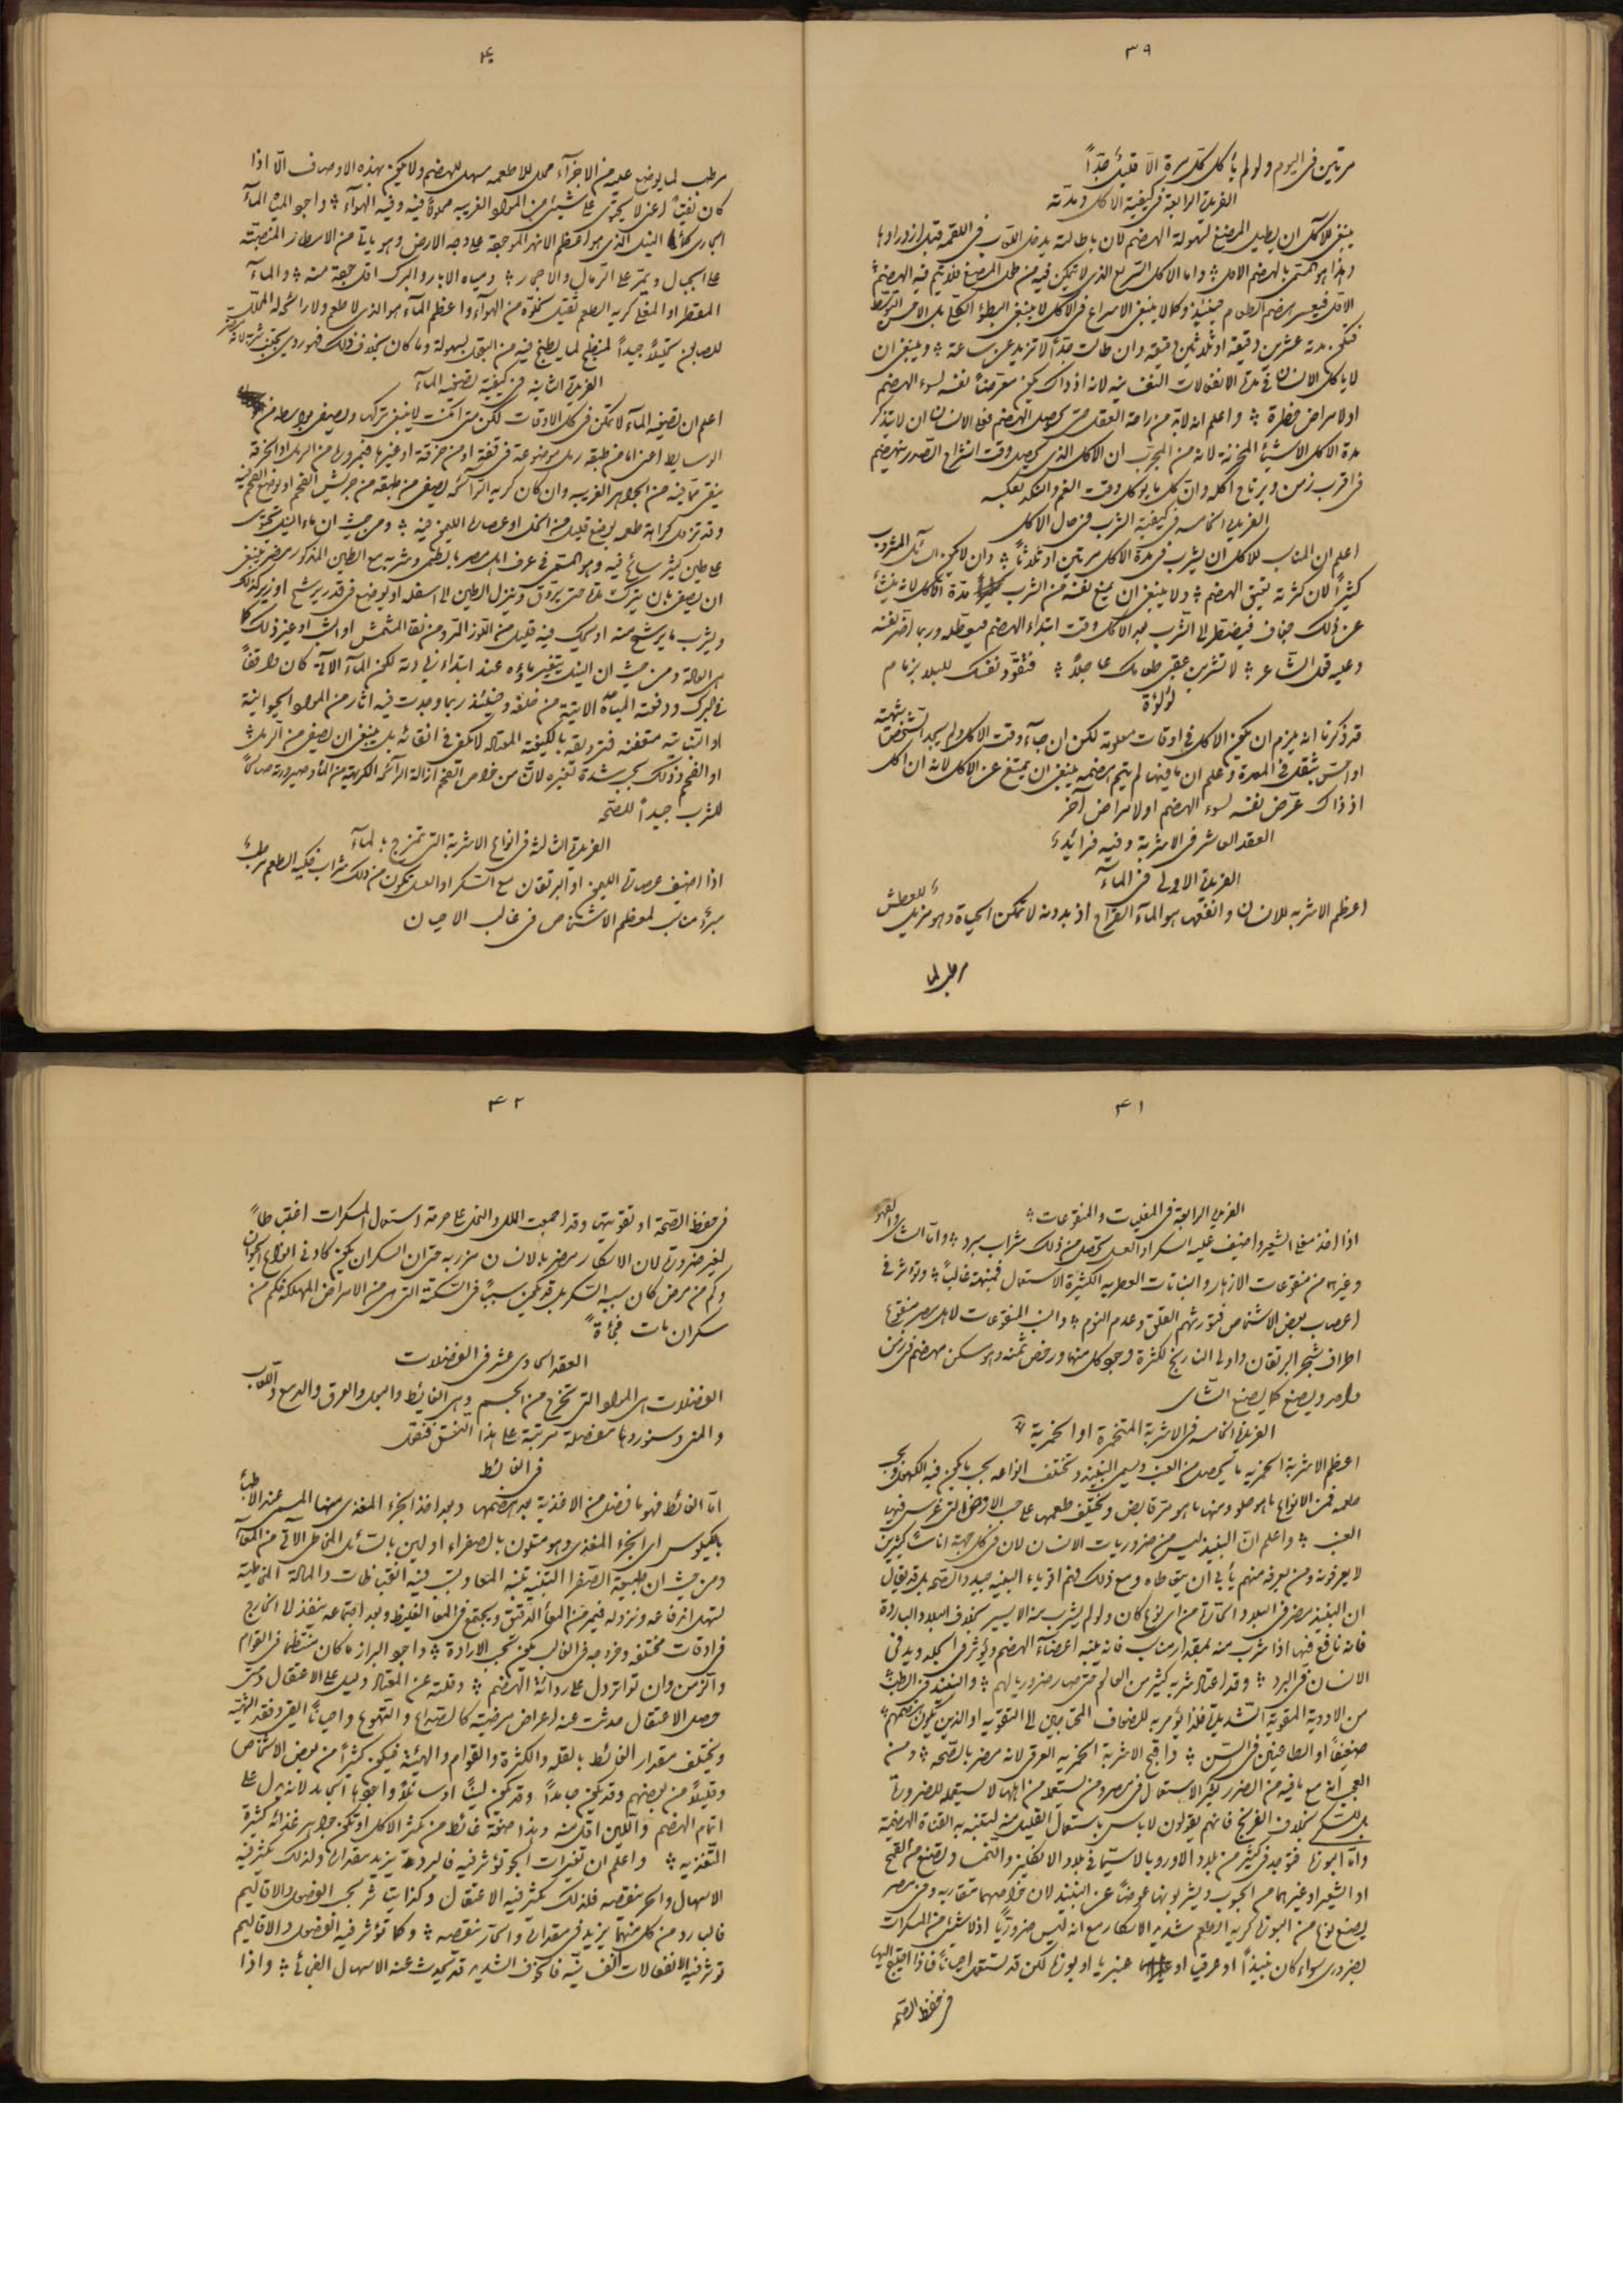 ٣٩
مرتين فى اليوم ولو لم يأكل كل مرة الا قليلا جدّاً
الفريدة الرابعة فى كيفية الاكل ومدّته
ينبغى للآكل ان يطيل المضغ لسهولة الهضم لان باطالته يدخل اللعاب فى اللقمة قبل ازدرادها
وهذا هو المسمى بالهضم الاول واما الاكل السريع الذى لا يتمكن فيه من طول المضغ فلا يتم فيه الهضم
الاول فيعسر هضم الطعام حينئذ وكما لا ينبغى الاسراع فى الاكل لا ينبغى البطؤ الكلى بل الاحسن التوسط
فتكون مدته عشرين دقيقة او ثلاثين دقيقة وان طالت جدّاً لا تزيد عن ساعة وينبغى ان
لا يأكل الانسان فى مدة الانفعالات النفسانية لانه اذ ذاك يكون معرضاً نفسه لسوء الهضم
او لامراض خطرة واعلم انه لابد من راحة العقل حتى يحصل الهضم فعلى الانسان ان لا يتذكر
مدة الاكل الاشياء المحزنة لانه من المجرب ان الاكل الذى يحصل وقت انشراح الصدر ينهضم
فى اقرب زمن ويرتاح اكله وان كل ما يؤكل وقت الغم والنكد بعكسه
الفريدة الخامسة فى كيفية الشرب فى حال الاكل
اعلم ان المناسب للاكل ان يشرب فى مدة الاكل مرتين او ثلاثاً وان لا يكون السائل المشروب
كثيراً لان كثرته تعيق الهضم ولا ينبغى ان يمنع نفسه من الشرب مدة الاكل لانه ينشأ
عن ذلك جفاف فيضطر الى الشرب بعد الاكل وقت ابتداء الهضم فيعطله وربما اضر نفسه
وعليه قول الشاعر لا تشربن عقب طعامك عاجلاً فتقود نفسك للبلا بزمام
لؤلؤة
قد ذكرنا انه يلزم ان يكون الاكل فى اوقات معلومة لكن ان جآء وقت الاكل ولم يجد الشخص شهيته
او احس بثقل فى المعدة وعلم ان ما فيها لم يتم هضمه ينبغى ان يمتنع عن الاكل لانه ان اكل
اذ ذاك عرّض نفسه لسوء الهضم او لامراض آخر
العقد العاشر فى الاشربة وفيه فرائد
الفريدة الاولى فى المآء
اعظم الاشربة للانسان وانفعها هو المآء القراح اذ بدونه لا تمكن الحياة وهو مزيل للعطش
مرطب لما
٤٠
مرطب لما يوضع عليه من الاجزآء محلل للاطعمة مسهل للهضم ولا يكون بهذه الاوصاف الّا اذا
كان نقيّاً اعنى لا يحتوى على شيئ من المواد الغريبة محلولاً فيه وفيه الهوآء واجود المياه المآء
الجارى كمآء النيل الذى هو اعظم الانهر الموجودة على وجه الارض وهو يأتى من الامطار المنصبّة
على الجبال ويمرّ على الرمال والاحجار ومياه الابار والبرك اقل جودة منه والمآء
المقطر او المغلى كريه الطعم ثقيل لخلوّه من الهوآء واعظم المآء هو الذى لا طعم ولا رائحة له المحلل
للصابون تحليلاً جيداً المنضج لما يطبخ فيه من البقول بسهولة وما كان بخلاف ذلك فهو ردى يجتنب شربه لانه مضر
الفريدة الثانية فى كيفية تصفية المآء
اعلم ان تصفية المآء لا تمكن فى كل الاوقات لكن متى امكنت لا ينبغى تركها ويصفى بواسطة من
الوسايط اعنى اما من طبقة رمل موضوعة فى قفة او من خرقة او غيرها فبمروره من الرمل او الخرقة
ينقى مما فيه من الجواهر الغريبة وان كان كريه الرآئحة يصفى من طبقة من جريش الفحم او يوضع الفحم فيه
وقد تزول كراهة طعمه بوضع قليل من الخل او عصارة الليمون فيه ومن حيث ان ماء النيل يحتوى
على طين كثير سائح فيه وهو المسمى فى عرف اهل مصر بالطمى وشربه مع الطين المذكور مضر ينبغى
ان يصفى بان يترك مدة حتى يروق وينزل الطين الى اسفله او يوضع فى قدر يرشح او زير كذلك
ويشرب ما يرشح منه او يحك فيه قليل من اللوز المر ومن نقا المشمش او الشب او غير ذلك كما
هى العادة ومن حيث ان النيل يتغير ماؤه عند ابتداء زيادته لكون المآء الاتى كان واقفاً
فى البرك ودفعته المياه الاتية من خلفه وحينئذ ربما وجدت فيه اثار من المواد الحيوانية
او النباتية متعفنة فترويقه بالكيفية المعتادة لا يكفى فى انقائه بل ينبغى ان يصفى من الرمل
او الفحم وذلك بحسب شدة تغيره لان من خواص الفحم ازالة الرآئحة الكريهة من المآء وصيرورته صالحاً
للشرب جيداً للصحة
الفريدة الثالثة فى انواع الاشربة التى تمزج بالمآء
اذا اضيف عصارة الليمون او البرتقان مع السكر او العسل تكون من ذلك شراب فكيه الطعم مرطب
مبرد مناسب لمعظم الاشخاص فى غالب الاحيان
٤١
الفريدة الرابعة فى المغليات والمنقوعات
اذا اخذ مغلى الشعير واضيف عليه السكر او العسل تحصل من ذلك شراب مبرد وامّا الشاى والقهوة
وغيرهما من منقوعات الازهار والنباتات العطرية الكثيرة الاستعمال فمنبهة غالباً وتؤثر فى
اعصاب بعض الاشخاص فتورثهم القلق وعدم النوم وانسب المنقوعات لاهل مصر منقوع
اطراف شجر البرتقان واولى النارنج لكثرة وجود كل منهما ورخص ثمنه وهو مسكن مهضم فى زمن
واحد ويصنع كما يصنع الشاى
الفريدة الخامسة فى الاشربة المتخمرة او الخمرية
اعظم الاشربة الخمرية ما يتحصل من العنب ويسمى النبيذ وتختلف انواعه بحسب ما يكون فيه الكهول وبحسب
طعمه فمن الانواع ما هو حلو ومنها ما هو مرّ قابض ويختلف طعمها على حسب الاراضى التى غرس فيها
العنب واعلم انّ النبيذ ليس من ضروريات الانسان لان فى كل جهة اناسا كثيرين
لا يعرفونه ومن يعرفه منهم يأبى ان يتعاطاه ومع ذلك فهم اقوياء البنية جيدو الصحة بل قد يقال
ان النبيذ مضر فى البلاد الحارة من اى نوع كان ولو لم يشرب منه الا يسير بخلاف البلاد الباردة
فانه نافع فيها اذا شرب منه بمقدار مناسب فانه ينبه اعضآء الهضم ويؤثر فى الجلد ويدفى
الانسان فى البرد وقد اعتاد شربه كثير من العالم حتى صار ضروريا لهم والنبيذ فى الطب
من الادوية المقوية الشديدة فلذا يؤمر به للضعاف المحتاجين الى التقوية او الذين يكون هضمهم
ضعيفاً او الطاعنين فى السن واقبح الاشربة الخمرية العرقى لانه مضر بالصحة ومن
العجب انه مع ما فيه من الضرر كثير الاستعمال فى مصر ومن يستعمله من اهلها لا يستعمله للضرورة
بل للسكر بخلاف الفرنج فانهم يقولون لا باس باستعمال القليل منه لتتنبه به القناة الهضمية
وامّا البوزة فتوجد فى كثير من بلاد الاوروبا لاسيما فى بلاد الانكليز والنمسا وتصنع من القمح
او الشعير او غيرهما من الحبوب ويشربونها عوضاً عن النبيذ لان خواصهما متقاربة وفى مصر
يصنع نوع من البوزة كريه الطعم شديد الاسكار مع انه ليس ضروريّاً اذ لا شيئ من المسكرات
بضرورى سواء كان نبيذاً او عرقيا او عنبريا او بوزة لكن قد تستعمل احياناً فاذا احتيج اليها
فى حفظ الصحة
٤٢
فى حفظ الصحة او تقويتها وقد اجمعت الملل والنحل على حرمة استعمال المسكرات اغتباطاً
لغير ضرورة لان الاسكار مضر بالانسان مزر به حتى ان السكران يكون كادنى انواع الحيوان
وكم من مرض كان سببه السكر بل قد يكون سبباً فى السكتة التى هى من الامراض المهلكة فكم من
سكران مات فجأة
العقد الحادى عشر فى الفضلات
الفضلات هى المواد التى تخرج من الجسم وهى الغائط والبول والعرق والدمع واللعاب
والمنى وسنوردها مفصلة مرتبة على هذا النسق فنقول
فى الغائط
امّا الغائط فهو ما فضل من الاغذية بعد هضمها وبعد اخذ الجزء المغذى منها المسمى عند الاطباء
بالكيلوس اى الجزء المغذى وهو متلون بالصفراء او لين بالسائل المخاطى الآتى من المعا
ومن حيث ان طبيعة الصفرا التنبيه تنبه المعا وتسبب فيه انقباضات والمادة المخاطية
لتسهل اندفاعه ونزوله فيمر من المعا الدقيق ويجتمع فى المعا الغليظ وبعد اجتماعه ينفذ الى الخارج
فى اوقات مختلفة وخروجه فى الغالب يكون تحت الارادة واجود البراز ما كان منتظما فى القوام
والزمن وان تواتر دل على رداءة الهضم وقلته عن المعتاد دليل على الاعتقال ومتى
حصل الاعتقال حدثت عنه اعراض مرضية كالصداع والتهوع واحياناً القى وفقد الشهية
ويختلف مقدار الغائط بالقلة والكثرة والقوام والهيئة فيكون كثيراً من بعض الاشخاص
وقليلاً من بعضهم وقد يكون جامداً وقد يكون ليناً او سائلاً واجودها الجامد لانه يدل على
اتمام الهضم واللين اقل منه وهذا صفة غائط من يكثر الاكل او تكون جواهر غذائه كثيرة
التغذية واعلم ان تغيرات الجو تؤثر فيه فالبرودة يزيد مقداره ولذلك يكثر فيه
الاسهال والحر ينقصه فلذلك يكثر فيه الاعتقال وكذا يتأثر بحسب الفصول والاقاليم
فالبارد من كل منهما يزيد فى مقداره والحار ينقصه وكما تؤثر فيه الفصول والاقاليم
تؤثر فيه الانفعالات النفسانية فالخوف الشديد قد يحدث عنه الاسهال الفجائى واذا